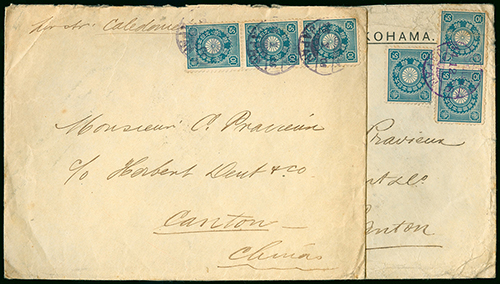 per str: Calédonien
Monsieur C. Pravieux
c/o Herbert Dent & Co.
Canton
China
KOHAMA.
Pravieux
nt & Co.
anton